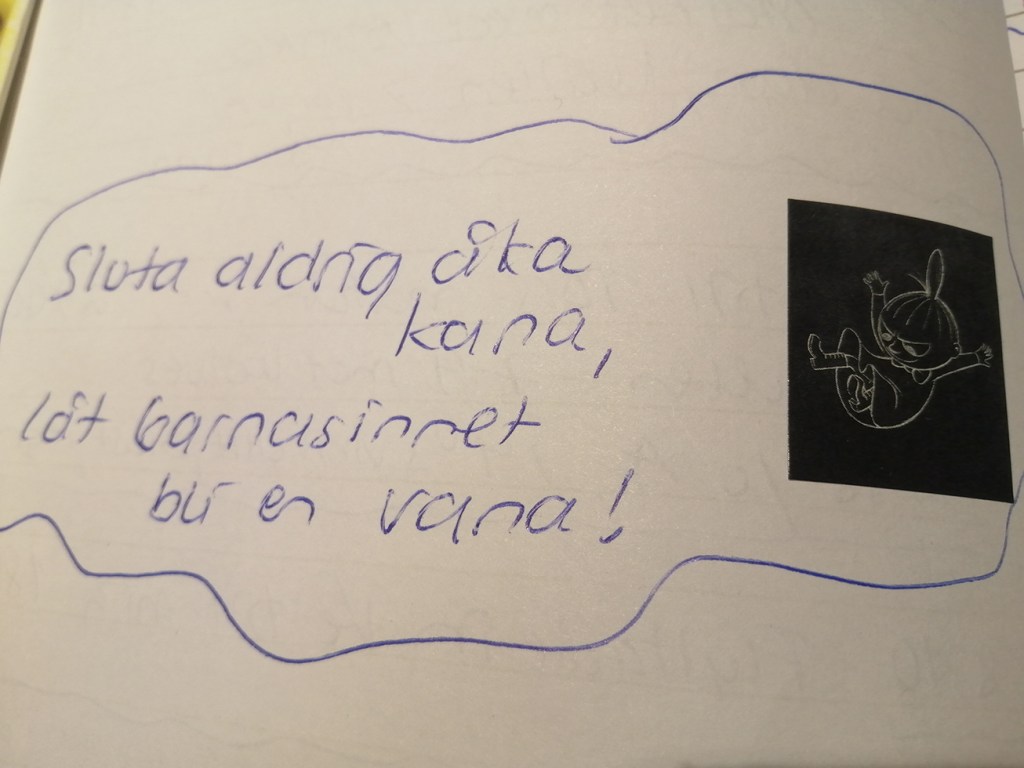 Sluta aldrig åka
kana,
låt barnasinnet
bli en vana!